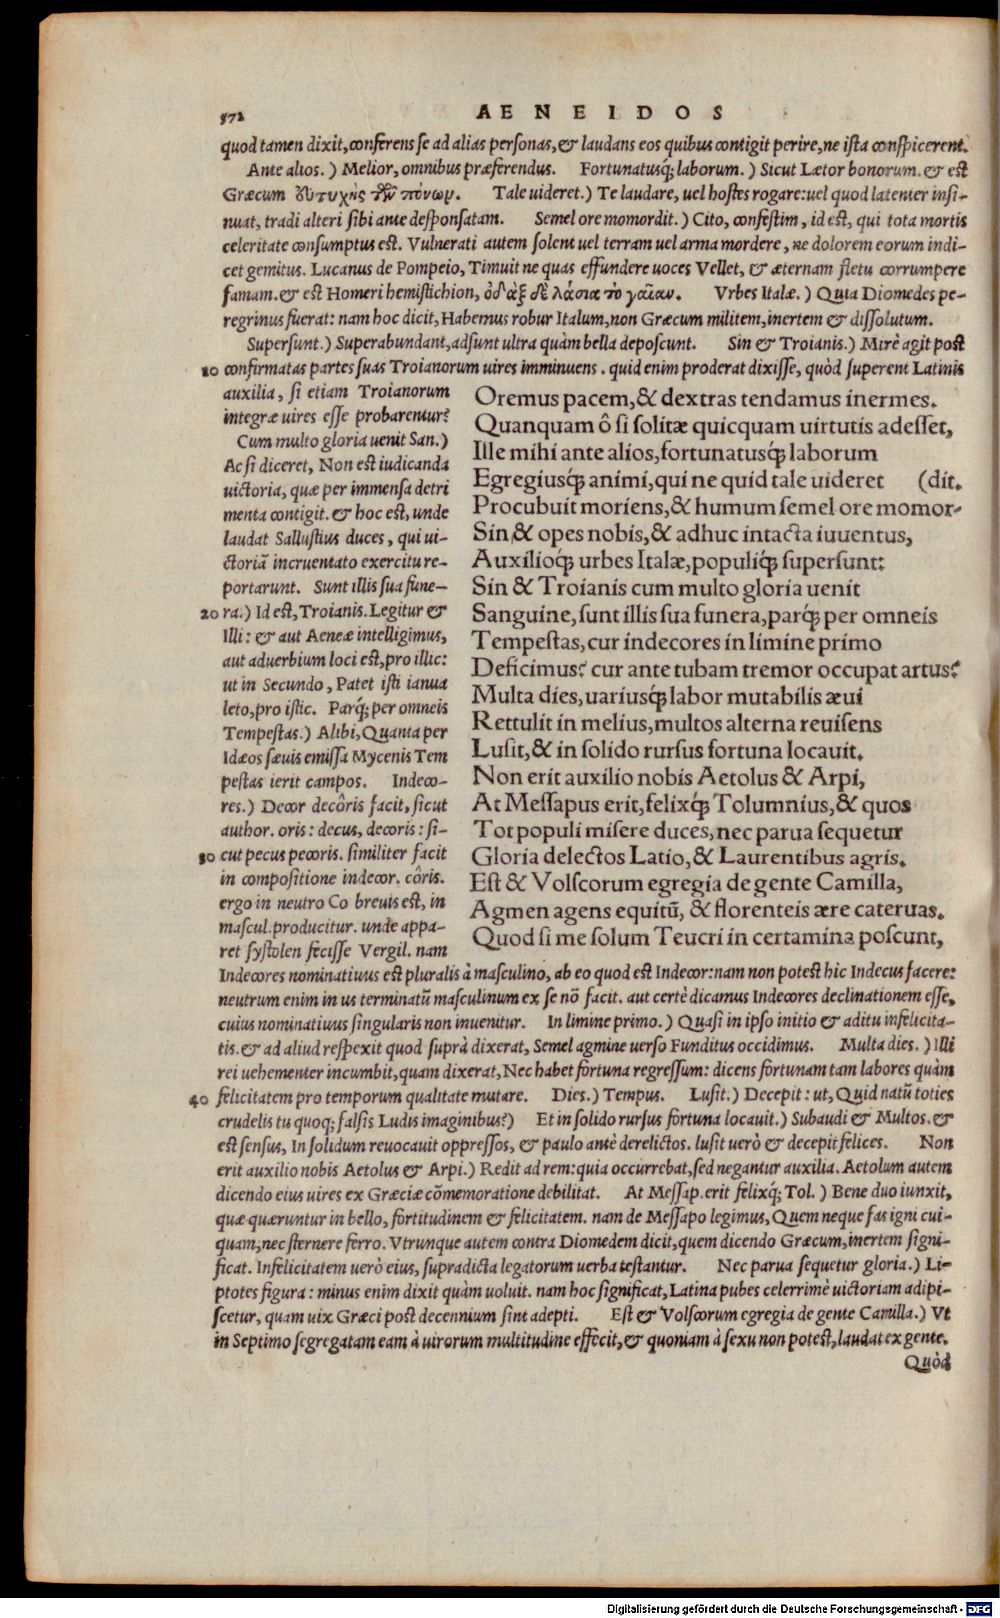 572
AENEIDOS
quod tamen dixit, conferens se ad alias personas, & laudans eos quibus contigit perire, ne ista conspicerent.
Ante alios. ) Melior, omnibus præferendus. Fortunatusq́; laborum. ) Sicut Lætor bonorum. & est
Græcum εὐτυχὴς τῶν πόνων. Tale uideret.) Te laudare, uel hostes rogare: uel quod latenter insi-
nuat, tradi alteri sibi ante desponsatam. Semel ore momordit. ) Cito, confestim, id est, qui tota mortis
celeritate consumptus est. Vulnerati autem solent uel terram uel arma mordere, ne dolorem eorum indi-
cet gemitus. Lucanus de Pompeio, Timuit ne quas effundere uoces Vellet, & æternam fletu corrumpere
famam. & est Homeri hemistichion, ὀδὰξ δὲ λάσια το γαῖαν. Vrbes Italæ. ) Quia Diomedes pe-
regrinus fuerat: nam hoc dicit, Habemus robur Italum, non Græcum militem, inertem & dissolutum.
Supersunt. ) Superabundant, adsunt ultra quàm bella deposcunt. Sin & Troianis.) Mirè agit post
10 confirmatas partes suas Troianorum uires imminuens. quid enim proderat dixisse, quòd superent Latinis
auxilia, si etiam Troianorum
integræ uires esse probarentur?
Cum multo gloria uenit San.)
Ac si diceret, Non est iudicanda
uictoria, quæ per immensa detri
menta contigit. & hoc est, unde
laudat Sallustius duces, qui ui-
ctoriã incruentato exercitu re-
portarunt. Sunt illis sua fune-
20 ra.) Id est, Troianis. Legitur &
Illi: & aut Aeneæ intelligimus,
aut aduerbium loci est, pro illic:
ut in Secundo, Patet isti ianua
leto, pro istic. Parq́; per omneis
Tempestas.) Alibi, Quanta per
Idæos sæuis emissa Mycenis Tem
pestas ierit campos. Indeco-
res.) Decor decôris facit, sicut
author. oris: decus, decoris: si-
30 cut pecus pecoris. similiter facit
in compositione indecor. côris.
ergo in neutro Co breuis est, in
mascul. producitur. unde appa-
ret systolen fecisse Vergil. nam
Oremus pacem, & dextras tendamus inermes.
Quanquam ô si solitæ quicquam uirtutis adesset,
Ille mihi ante alios, fortunatusq́; laborum
Egregiusq́; animi, qui ne quid tale uideret (dit.
Procubuit moriens, & humum semel ore momor-
Sin & opes nobis, & adhuc intacta iuuentus,
Auxilioq́; urbes Italæ, populiq́; supersunt:
Sin & Troianis cum multo gloria uenit
Sanguine, sunt illis sua funera, parq́; per omneis
Tempestas, cur indecores in limine primo
Deficimus? cur ante tubam tremor occupat artus?
Multa dies, uariusq́; labor mutabilis æui
Rettulit in melius, multos alterna reuisens
Lusit, & in solido rursus fortuna locauit.
Non erit auxilio nobis Aetolus & Arpi,
At Messapus erit, felixq́; Tolumnius, & quos
Tot populi misere duces, nec parua sequetur
Gloria delectos Latio, & Laurentibus agris.
Est & Volscorum egregia de gente Camilla,
Agmen agens equitũ, & florenteis ære cateruas.
Quod si me solum Teucri in certamina poscunt,
Indecores nominatiuus est pluralis à masculino, ab eo quod est Indecor: nam non potest hic Indecus facere:
neutrum enim in us terminatũ masculinum ex se nõ facit. aut certè dicamus Indecores declinationem esse,
cuius nominatiuus singularis non inuenitur. In limine primo. ) Quasi in ipso initio & aditu infelicita-
tis. & ad aliud respexit quod suprà dixerat, Semel agmine uerso Funditus occidimus. Multa dies. ) Illi
rei uehementer incumbit, quam dixerat, Nec habet fortuna regressum: dicens fortunam tam labores quàm
40 felicitatem pro temporum qualitate mutare. Dies.) Tempus. Lusit.) Decepit: ut, Quid natũ toties
crudelis tu quoq; falsis Ludis imaginibus?) Et in solido rursus fortuna locauit.) Subaudi & Multos. &
est sensus, In solidum reuocauit oppressos, & paulo antè derelictos. lusit uerò & decepit felices. Non
erit auxilio nobis Aetolus & Arpi.) Redit ad rem: quia occurrebat, sed negantur auxilia. Aetolum autem
dicendo eius uires ex Græciæ cõmemoratione debilitat. At Messap. erit felixq́; Tol. ) Bene duo iunxit,
quæ quæruntur in bello, fortitudinem & felicitatem. nam de Messapo legimus, Quem neque fas igni cui-
quam, nec sternere ferro. Vtrunque autem contra Diomedem dicit, quem dicendo Græcum, inertem signi-
ficat. Infelicitatem uerò eius, supradicta legatorum uerba testantur. Nec parua sequetur gloria.) Li-
ptotes figura: minus enim dixit quàm uoluit. nam hoc significat, Latina pubes celerrimè uictoriam adipi-
scetur, quam uix Græci post decennium sint adepti. Est & Volscorum egregia de gente Camilla.) Vt
in Septimo segregatam eam à uirorum multitudine effecit, & quoniam à sexu non potest, laudat ex gente.
Quòd
Digitalisierung gefördert durch die Deutsche Forschungsgemeinschaft - DFG